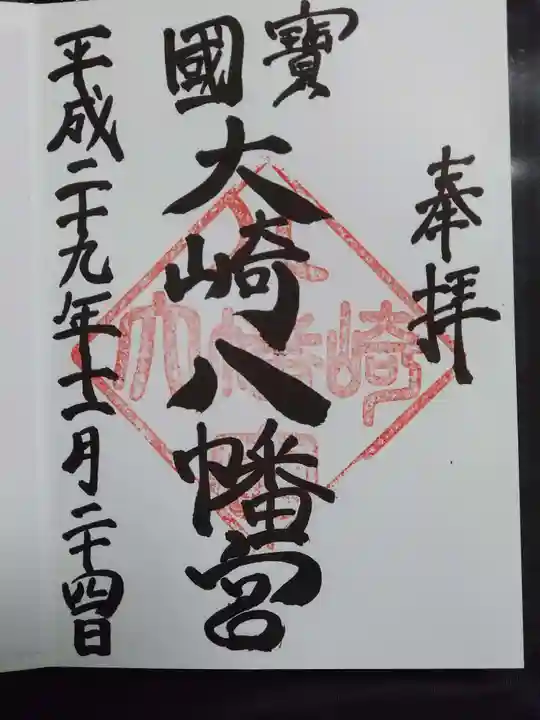 奉拝
國寳
大崎八幡宮
平成二十九年十一月二十四日
大崎八幡宮